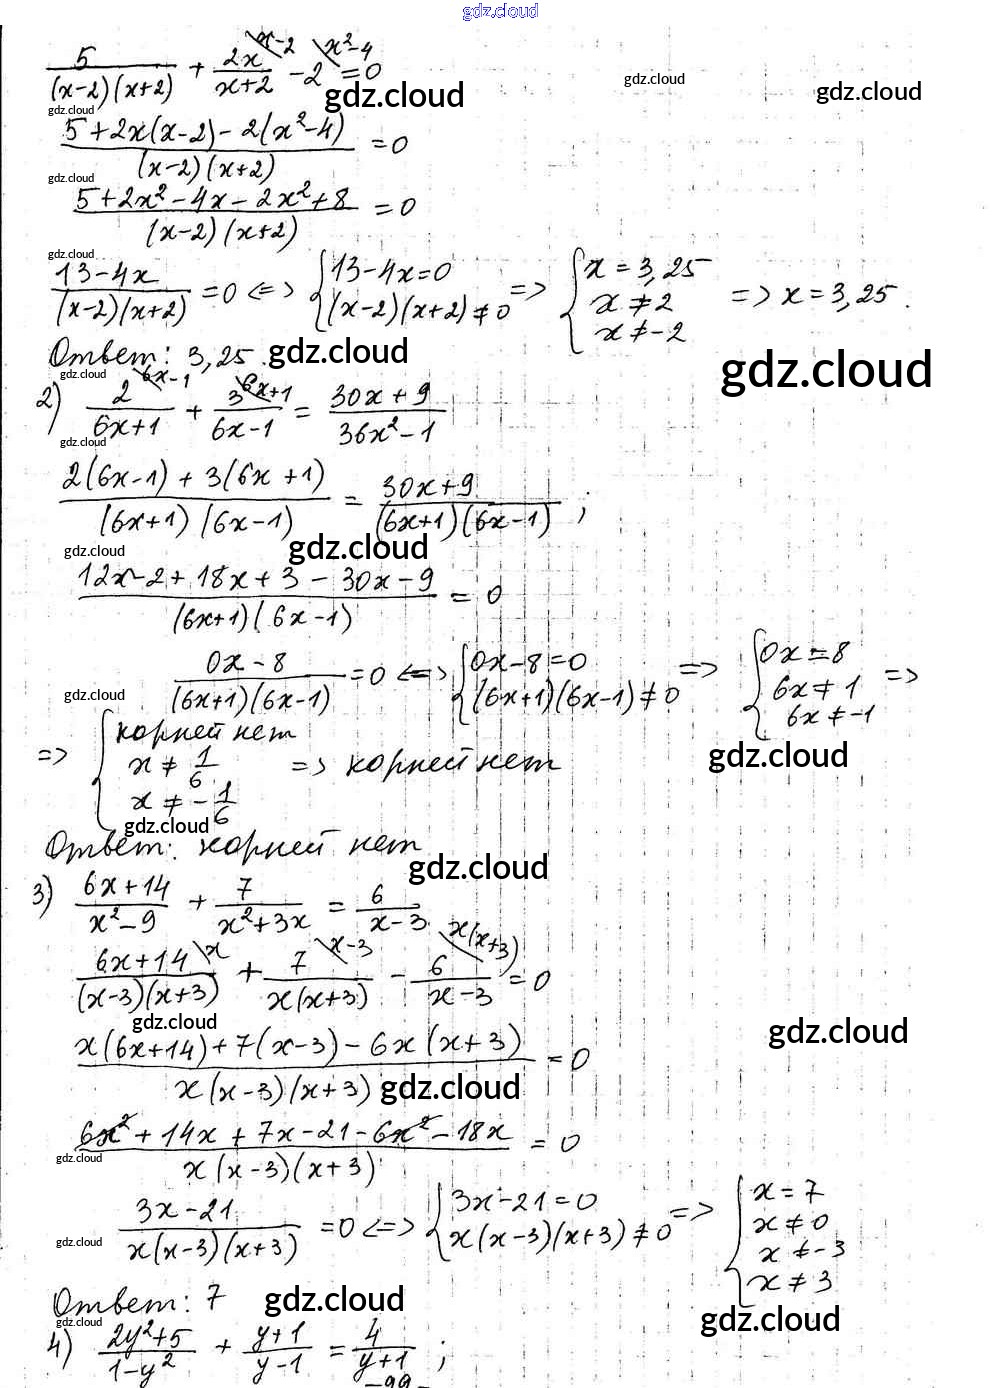 gdz.cloud
5/((x-2)(x+2)) + 2x/(x+2) ^{x-2} - 2 ^{x²-4} = 0
gdz.cloud gdz.cloud gdz.cloud
gdz.cloud
(5+2x(x-2)-2(x²-4))/((x-2)(x+2)) = 0
gdz.cloud
(5+2x²-4x-2x²+8)/((x-2)(x+2)) = 0
gdz.cloud
(13-4x)/((x-2)(x+2)) = 0 <=> { 13-4x=0; (x-2)(x+2)≠0 => { x=3,25; x≠2; x≠-2 => x=3,25.
Ответ: 3,25. gdz.cloud
gdz.cloud gdz.cloud
2) 2/(6x+1) ^{6x-1} + 3/(6x-1) ^{6x+1} = (30x+9)/(36x²-1)
gdz.cloud
(2(6x-1)+3(6x+1))/((6x+1)(6x-1)) = (30x+9)/((6x+1)(6x-1)) ;
gdz.cloud gdz.cloud
(12x-2+18x+3-30x-9)/((6x+1)(6x-1)) = 0
(0x-8)/((6x+1)(6x-1)) = 0 <=> { 0x-8=0; (6x+1)(6x-1)≠0 => { 0x=8; 6x≠1; 6x≠-1 =>
gdz.cloud gdz.cloud
=> { корней нет; x≠1/6; x≠-1/6 => корней нет
gdz.cloud
Ответ: корней нет
gdz.cloud
3) (6x+14)/(x²-9) + 7/(x²+3x) = 6/(x-3)
(6x+14)/((x-3)(x+3)) ^{x} + 7/(x(x+3)) ^{x-3} - 6/(x-3) ^{x(x+3)} = 0
gdz.cloud gdz.cloud
(x(6x+14)+7(x-3)-6x(x+3))/(x(x-3)(x+3)) = 0
gdz.cloud
(6x²+14x+7x-21-6x²-18x)/(x(x-3)(x+3)) = 0
gdz.cloud
(3x-21)/(x(x-3)(x+3)) = 0 <=> { 3x-21=0; x(x-3)(x+3)≠0 => { x=7; x≠0; x≠-3; x≠3
gdz.cloud
Ответ: 7 gdz.cloud
gdz.cloud gdz.cloud
4) (2y²+5)/(1-y²) + (y+1)/(y-1) = 4/(y+1) ;
-99-